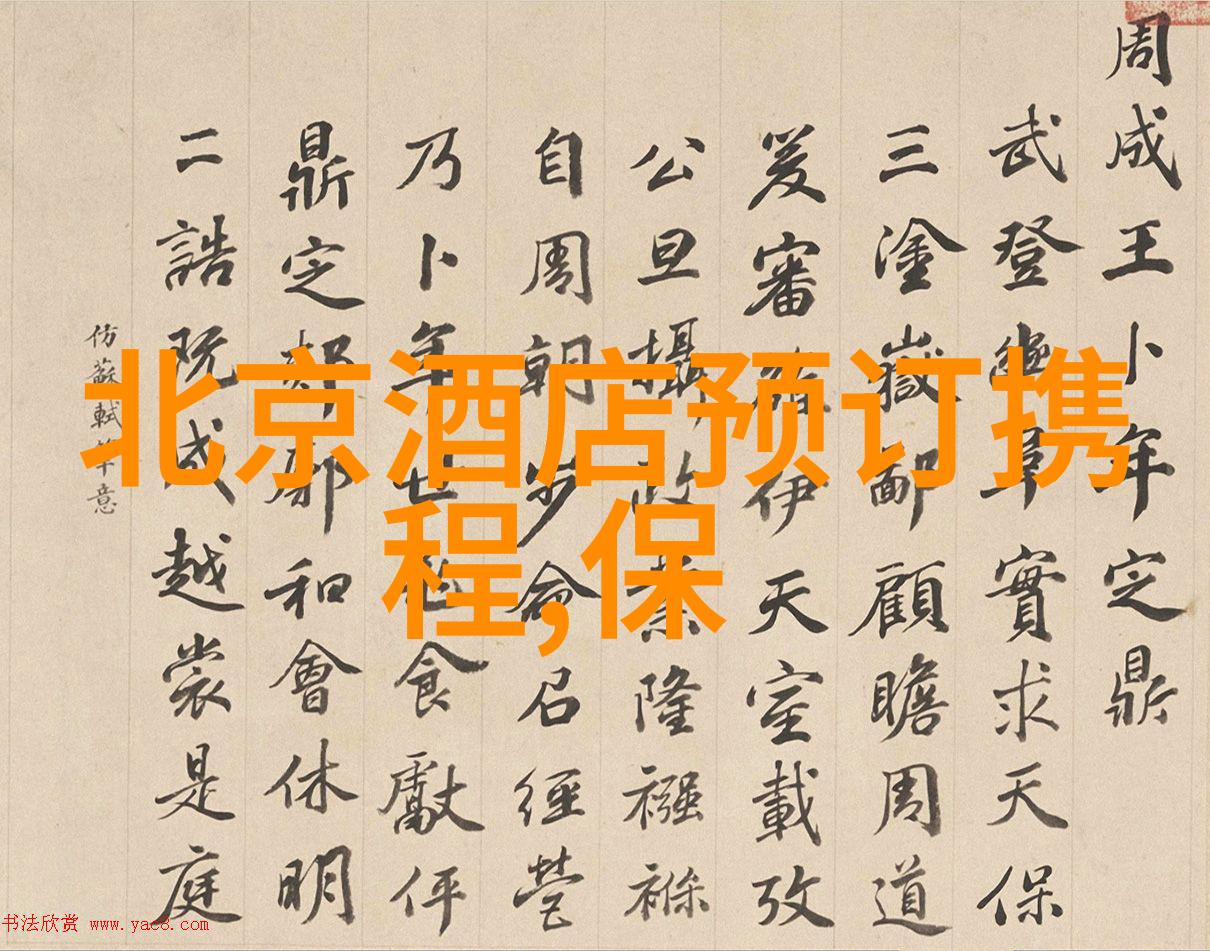 周成王卜年定鼎
武登實求天保
三塗嶽鄙顧瞻周道
爰審伊天室載攷
公旦攝政隆襁褓
自周朝步命召經營
乃卜年世食獻伻
鼎定郟鄏和會休明
二誥既成越裳是庭
仿蘇軾筆意
北京酒店预订携
程,保
书法欣赏 www.yac8.com